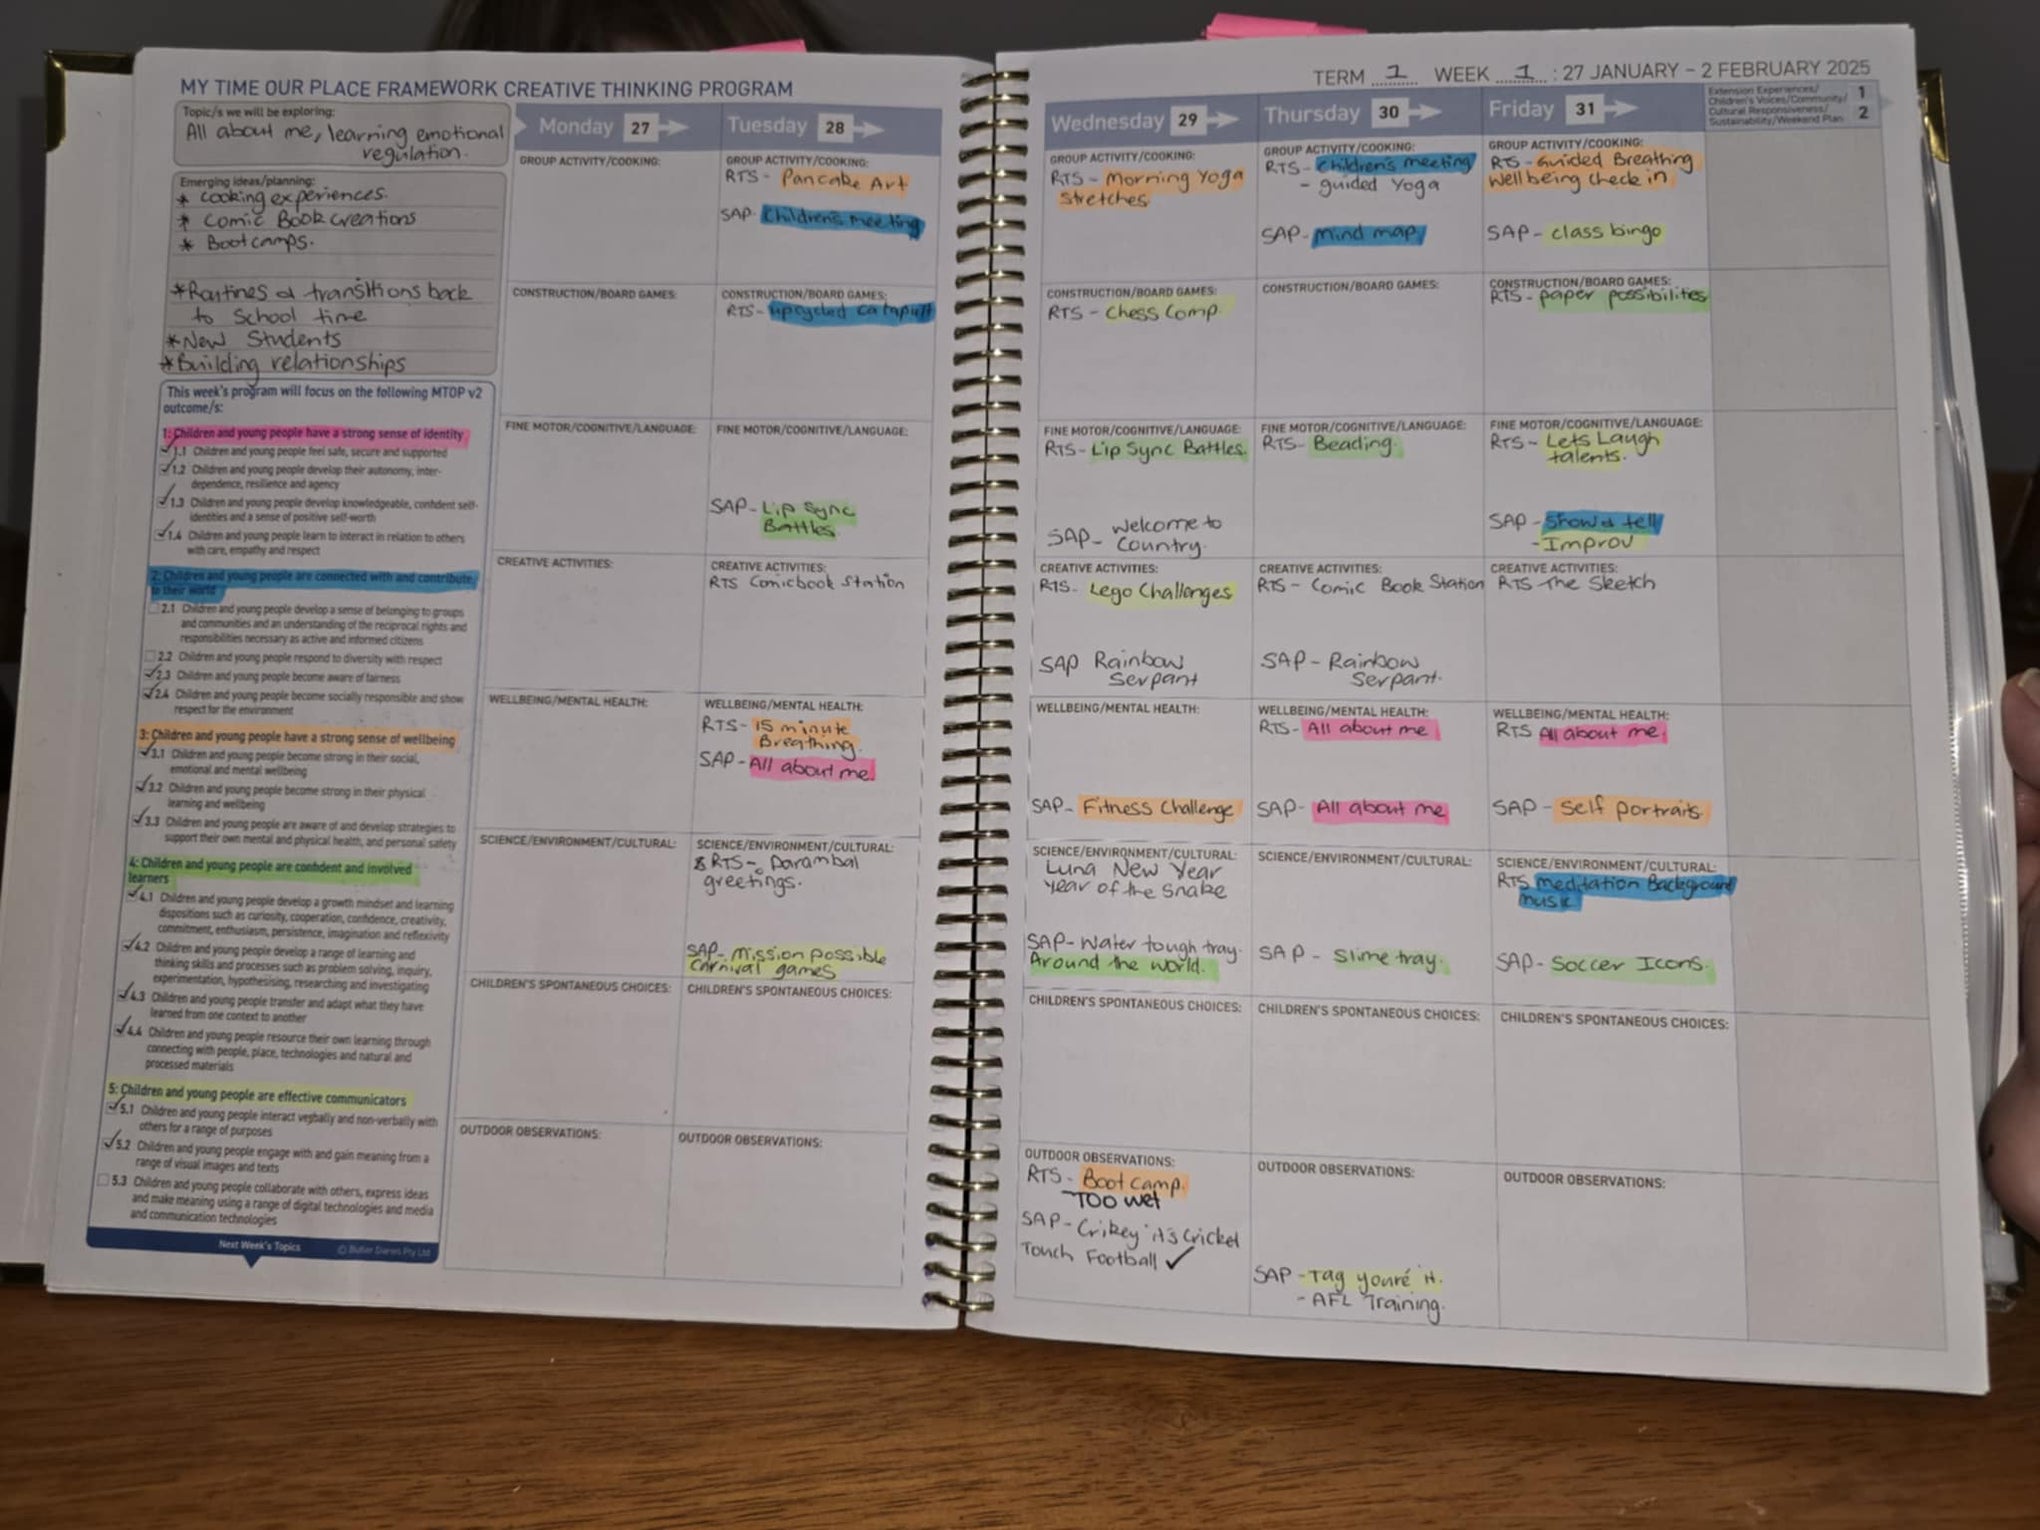 MY TIME OUR PLACE FRAMEWORK CREATIVE THINKING PROGRAM
Topic/s we will be exploring:
All about me, learning emotional
regulation.
Emerging ideas/planning:
* Cooking experiences.
* Comic Book Creations
* Bootcamps.
*Routines & transitions back
to School time
*New Students
*Building relationships
This week's program will focus on the following MTOP v2
outcome/s:
1: Children and young people have a strong sense of identity
1.1 Children and young people feel safe, secure and supported
1.2 Children and young people develop their autonomy, inter-
dependence, resilience and agency
1.3 Children and young people develop knowledgeable, confident self-
identities and a sense of positive self-worth
1.4 Children and young people learn to interact in relation to others
with care, empathy and respect
2: Children and young people are connected with and contribute
to their world
2.1 Children and young people develop a sense of belonging to groups
and communities and an understanding of the reciprocal rights and
responsibilities necessary as active and informed citizens
2.2 Children and young people respond to diversity with respect
2.3 Children and young people become aware of fairness
2.4 Children and young people become socially responsible and show
respect for the environment
3: Children and young people have a strong sense of wellbeing
3.1 Children and young people become strong in their social,
emotional and mental wellbeing
3.2 Children and young people become strong in their physical
learning and wellbeing
3.3 Children and young people are aware of and develop strategies to
support their own mental and physical health, and personal safety
4: Children and young people are confident and involved
learners
4.1 Children and young people develop a growth mindset and learning
dispositions such as curiosity, cooperation, confidence, creativity,
commitment, enthusiasm, persistence, imagination and reflexivity
4.2 Children and young people develop a range of learning and
thinking skills and processes such as problem solving, inquiry,
experimentation, hypothesising, researching and investigating
4.3 Children and young people transfer and adapt what they have
learned from one context to another
4.4 Children and young people resource their own learning through
connecting with people, place, technologies and natural and
processed materials
5: Children and young people are effective communicators
5.1 Children and young people interact verbally and non-verbally with
others for a range of purposes
5.2 Children and young people engage with and gain meaning from a
range of visual images and texts
5.3 Children and young people collaborate with others, express ideas
and make meaning using a range of digital technologies and media
and communication technologies
Next Week's Topics
© Butler Diaries Pty Ltd
Monday 27
GROUP ACTIVITY/COOKING:
CONSTRUCTION/BOARD GAMES:
FINE MOTOR/COGNITIVE/LANGUAGE:
CREATIVE ACTIVITIES:
WELLBEING/MENTAL HEALTH:
SCIENCE/ENVIRONMENT/CULTURAL:
CHILDREN'S SPONTANEOUS CHOICES:
OUTDOOR OBSERVATIONS:
Tuesday 28
GROUP ACTIVITY/COOKING:
RTS - Pancake Art
SAP- Children's meeting
CONSTRUCTION/BOARD GAMES:
RTS- upcycled catapult
FINE MOTOR/COGNITIVE/LANGUAGE:
SAP-Lip Sync
Battles.
CREATIVE ACTIVITIES:
RTS Comicbook Station
WELLBEING/MENTAL HEALTH:
RTS- 15 minute
Breathing.
SAP-All about me.
SCIENCE/ENVIRONMENT/CULTURAL:
RTS - Darambal
greetings.
SAP- mission possible
carnival games
CHILDREN'S SPONTANEOUS CHOICES:
OUTDOOR OBSERVATIONS:
TERM 1 WEEK 1 : 27 JANUARY – 2 FEBRUARY 2025
Wednesday 29
GROUP ACTIVITY/COOKING:
RTS - Morning Yoga
Stretches
CONSTRUCTION/BOARD GAMES:
RTS - Chess Comp.
FINE MOTOR/COGNITIVE/LANGUAGE:
RTS- Lip Sync Battles.
SAP- Welcome to
Country.
CREATIVE ACTIVITIES:
RTS- Lego Challenges
SAP Rainbow
Serpant
WELLBEING/MENTAL HEALTH:
SAP- Fitness Challenge
SCIENCE/ENVIRONMENT/CULTURAL:
Luna New Year
year of the snake
SAP- Water tough tray.
Around the world.
CHILDREN'S SPONTANEOUS CHOICES:
OUTDOOR OBSERVATIONS:
RTS- Boot camp.
TOO wet
SAP- Crikey it's Cricket
Touch Football ✓
Thursday 30
GROUP ACTIVITY/COOKING:
RTS- Children's meeting
- guided Yoga
SAP- mind map.
CONSTRUCTION/BOARD GAMES:
FINE MOTOR/COGNITIVE/LANGUAGE:
RTS- Beading.
CREATIVE ACTIVITIES:
RTS - Comic Book Station
SAP - Rainbow
Serpant.
WELLBEING/MENTAL HEALTH:
RTS- All about me
SAP- All about me
SCIENCE/ENVIRONMENT/CULTURAL:
SAP - Slime tray.
CHILDREN'S SPONTANEOUS CHOICES:
OUTDOOR OBSERVATIONS:
SAP -Tag you're it.
- AFL Training.
Friday 31
GROUP ACTIVITY/COOKING:
RTS - Guided Breathing
Wellbeing check in
SAP - class bingo
CONSTRUCTION/BOARD GAMES:
RTS - paper possibilities
FINE MOTOR/COGNITIVE/LANGUAGE:
RTS - Lets Laugh
talents.
SAP - Show & tell
-Improv
CREATIVE ACTIVITIES:
RTS The Sketch
WELLBEING/MENTAL HEALTH:
RTS All about me.
SAP - Self portraits.
SCIENCE/ENVIRONMENT/CULTURAL:
RTS meditation Background
music
SAP- Soccer Icons.
CHILDREN'S SPONTANEOUS CHOICES:
OUTDOOR OBSERVATIONS:
Extension Experiences/
Children's Voices/Community/
Cultural Responsiveness/
Sustainability/Weekend Plan
1
2